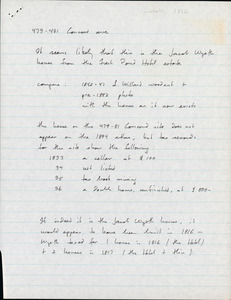 479-481 Concord Ave
It seems likely that this is the Jacob Wyeth
house from the Fresh Pond Hotel estate
compare: 1840-47 S. Willard woodcut +
pre-1892 photo
with the house as it now exists
The house on the 479-81 Concord site does not
appear on the 1894 atlas, but tax records
for the site show the following
1893 a cellar at $100
94 not listed
95 tax book missing
96 a Double house, unfinished, at $
If indeed it is the Jacob Wyeth house, it
would appear to have been built in 1816 -
Wyeth taxed for 1 house in 1816 (the Hotel)
+ 2 houses in 1817 (the Hotel + this)